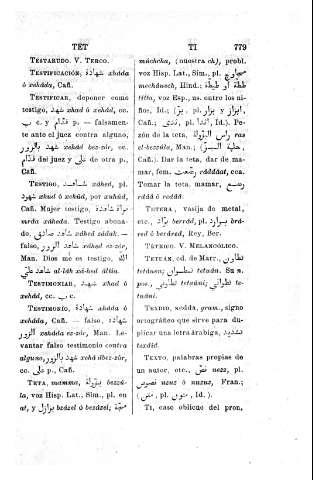 TÉT
TI
779
TESTARUDO. V. TERCO.
TESTIFICACIÓN, شهادة xháda
ó xehada, Cañ.
TESTIFICAR, deponer como
testigo, شهد xhad ó xehád, cc.
ب c. y قدّام p. — falsamen-
te ante el juez contra alguno,
شهد بالزور xhád bez-zúr, cc.
قدّام del juez y على de otra p.,
Cañ.
TESTIGO, شاهد xáhed, pl.
شهود xhud ó xehúd, por xuhúd,
Cañ. Mujer testigo, مرأة شاهدة
mrda xáheda. Testigo abona-
do, شاهد صادق xáhed sádak. —
falso, شاهد الزور xáhed ez-zúr,
Man. Dios me es testigo, الله
شاهد علىّ al-láh xá-hed áliia.
TESTIMONIAR, شهد xehad ó
xehád, cc. ب c.
TESTIMONIO, شهادة xháda ó
xeháda, Cañ. — falso, شهادة
الزور xáhda ez-zúr, Man. Le-
vantar falso testimonio contra
alguno, شهد بالزور xhd õbez-zúr,
cc. على p., Cañ.
TETA, mamma, بزولة bezzú-
la, voz Hisp. Lat., Sim., pl. en
at, y بزازل bzázel ó bezázel;
múchcha, (nuestra ch), probl.
voz Hisp. Lat., Sim., pl.
mechâuech, Hind.; طيطة ó ططة
titta, voz Esp., us. entre los ni-
ños, Id.; بزّ pl. بزاز y ابزاز,
Cañ.; ثدى, pl. اثدا, Id.). Pe-
zón de la teta, راس البزولة ras
el-bezzúla, Man.; (حلمة البزّ,
Cañ.). Dar la teta, dar de ma-
mar, fem. رضّعت ráddâat, cca.
Tomar la teta, mamar, رضع
rdâá ó redáâ.
TETERA, vasija de metal,
etc., برّاد berrád, pl. بوارد brá-
red ó berâred, Rey, Ser.
TÉTRICO. V. MELANCÓLICO.
TETUÁN, cd. de Marr., تطاون
tetáuen; تطوان tetuán. Su n.
pos., تطوانى tetuáni; تطوانى te-
tuáni.
TEXDID, sedda, gram., signo
ortográfico que sirve para du-
plicar una letra arábiga, تشديد
texdíd.
TEXTO, palabras propias de
un autor, etc., نصّ nezz, pl.
نصوص nzuz ó nuzuz, Fran.;
(متن, pl. متون, Id.).
TI, caso oblicuo del pron.